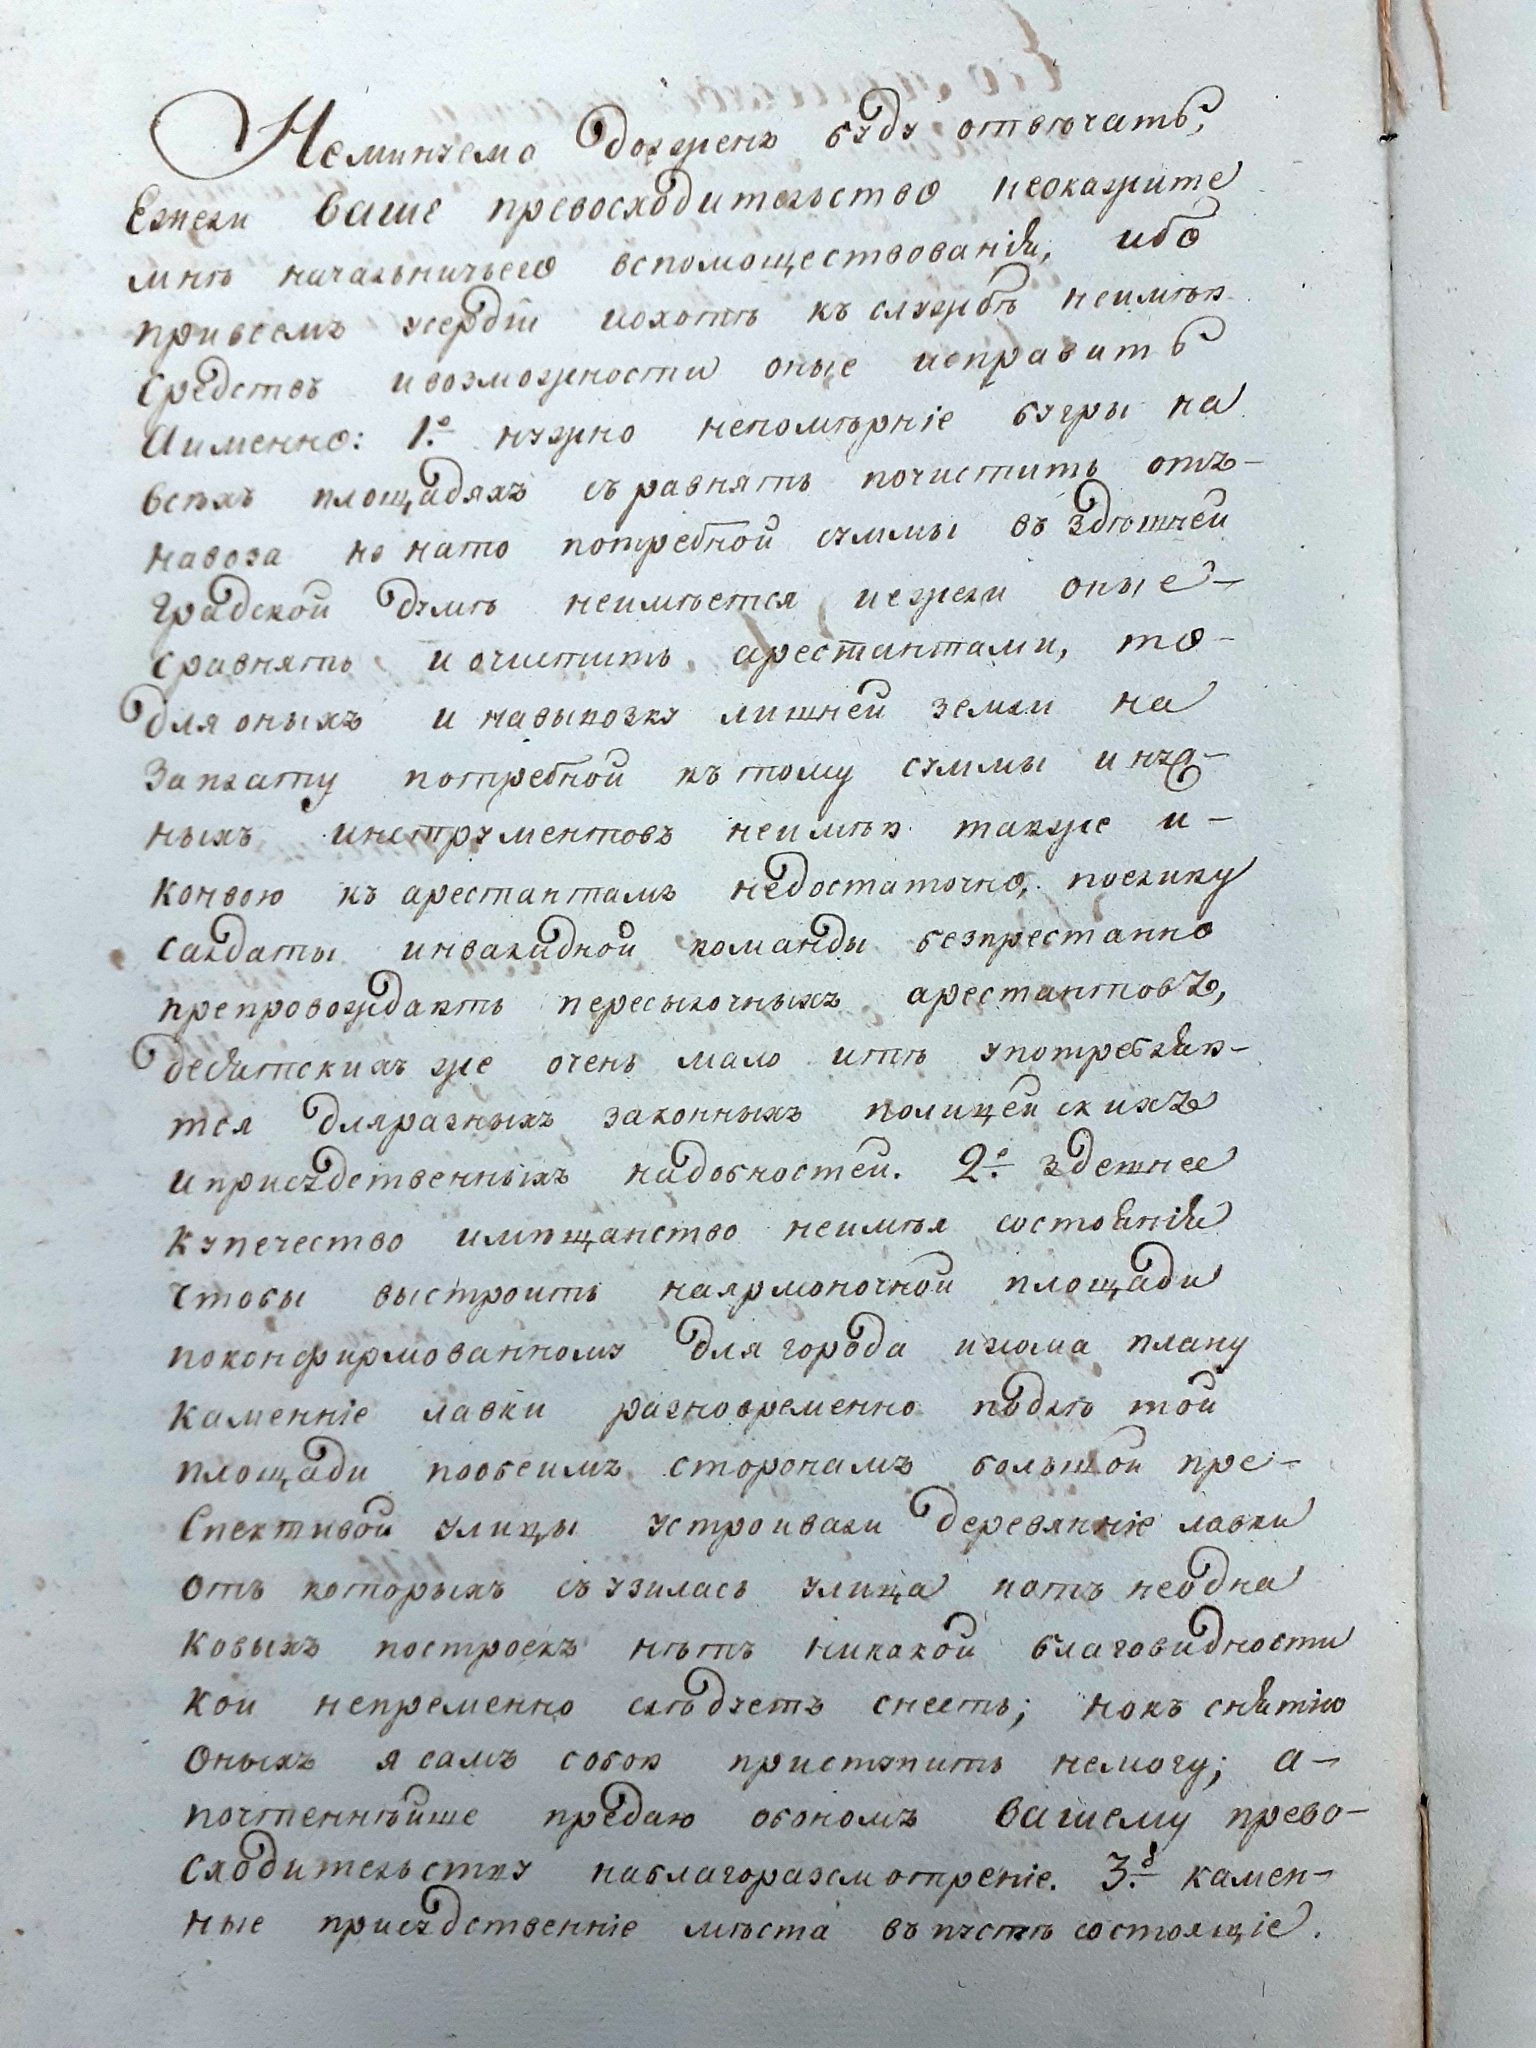 Неминуемо долженъ буду отвѣчать,
Ежели ваше превосходительство неокажите
мнѣ начальничьего вспомоществованія, ибо
привсемъ усердіи иохотѣ къ службѣ неимѣю
средствъ ивозможности оные исправить
Аименно: 1е нужно непомѣрніе бугры на
всѣхъ площадяхъ съравнять почистить отъ-
навоза но нато потребной суммы въ здѣшней
градской думѣ неимѣется иежели оные-
сравнять и очистить арестантами, то-
для оныхъ и навывозку лишней земли на
заплату потребной къ тому суммы и нуж-
ныхъ инструментовъ неимѣю также и-
конвою къ арестантамъ недостаточно, поелику
салдаты инвалидной команды безпрестанно
препровождають пересылочныхъ арестантовъ,
десятскихъ же очень мало итѣ употребляю-
тся дляразныхъ законныхъ полицейскихъ
иприсудственныхъ надобностей. 2е здешнее
купечество имѣщанство неимѣя состоянія
чтобы выстроить наярмоночной площади
поконфирмованному для города плану
каменніе лавки разновременно подлѣ той
площади пообеимъ сторонамъ большой пре-
спективой улицы устроивали деревянніе лавки
отъ которыхъ съузилась улица иотъ неодна
ковыхъ построекъ нѣтъ никакой благовидности
кои непременно слѣдуетъ снесть; нокъ снятію
оныхъ я самъ собою приступить немогу; а-
почтеннѣйше предаю обономъ вашему прево-
сходительству наблагоразсмотреніе. 3е камен-
ные присудственніе мѣста въ состоящіе.